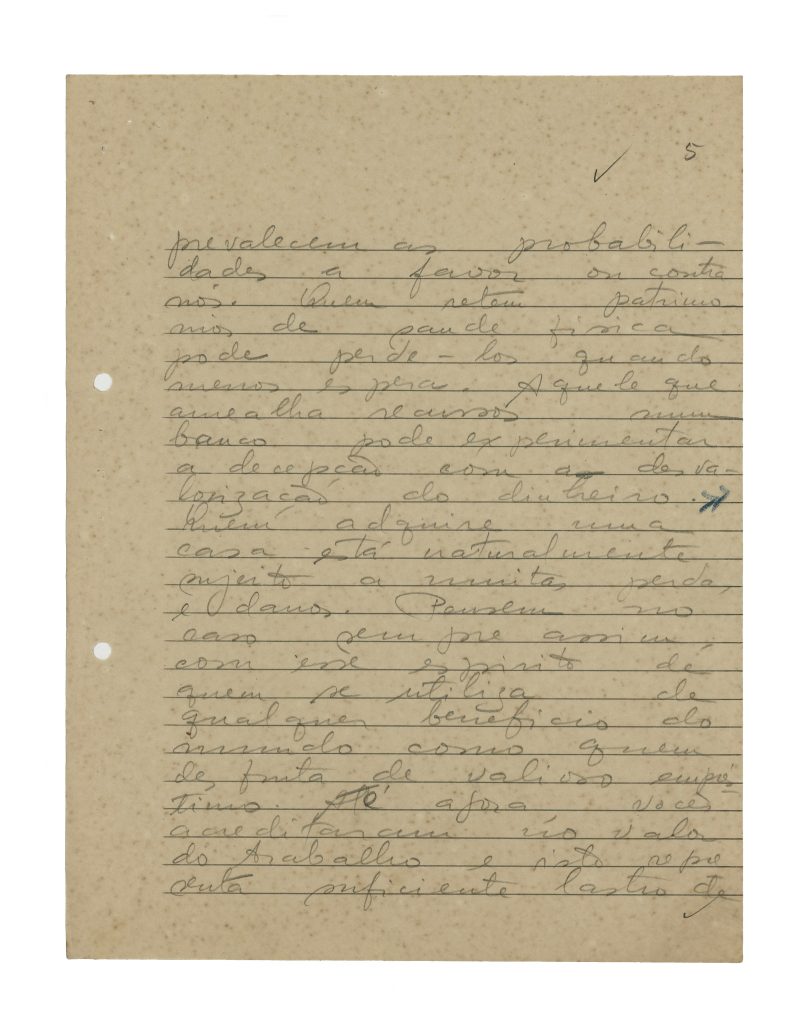 5
prevalecem as probabili-
dades a favor ou contra
nós. Quem retem patrimo
nios de saude fisica
pode perde-los quando
menos espera. Aquele que
amealha recursos num
banco pode experimentar
a decepção com a desva-
lorização do dinheiro.
Quem adquire uma
casa está naturalmente
sujeito a muitas perdas
e danos. Pensem no
caso sempre assim,
com esse espirito de
quem se utiliza de
qualquer beneficio do
mundo como quem
desfruta de valioso emprés
timo. Até agora voces
acreditaram no valor
do trabalho e isto repre
senta suficiente lastro de